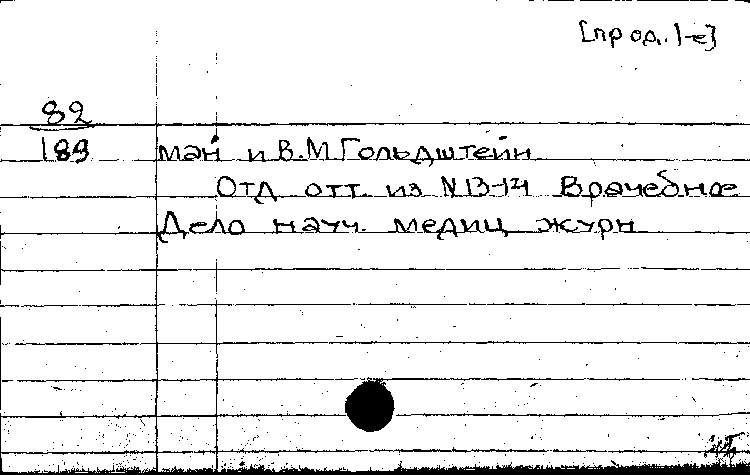 [прод. 1-е]
82
189 ман и В.М Гольдштейн
Отд отт. из N 13-14 Врачебное
Дело науч. медиц журн